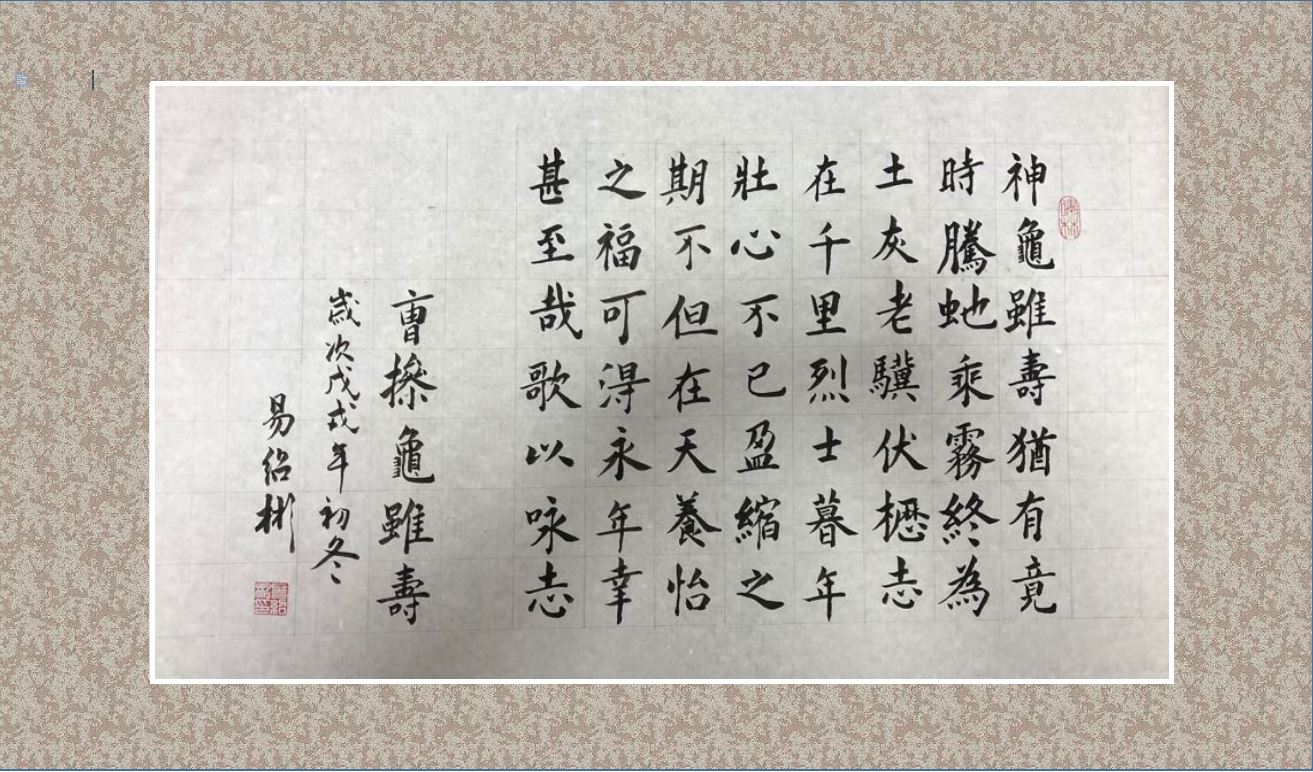 神龜雖壽猶有竟
時騰虵乘霧終為
土灰老驥伏櫪志
在千里烈士暮年
壯心不已盈縮之
期不但在天養怡
之福可得永年幸
甚至哉歌以咏志
曹操龜雖壽
歲次戊戌年初冬
易紹彬